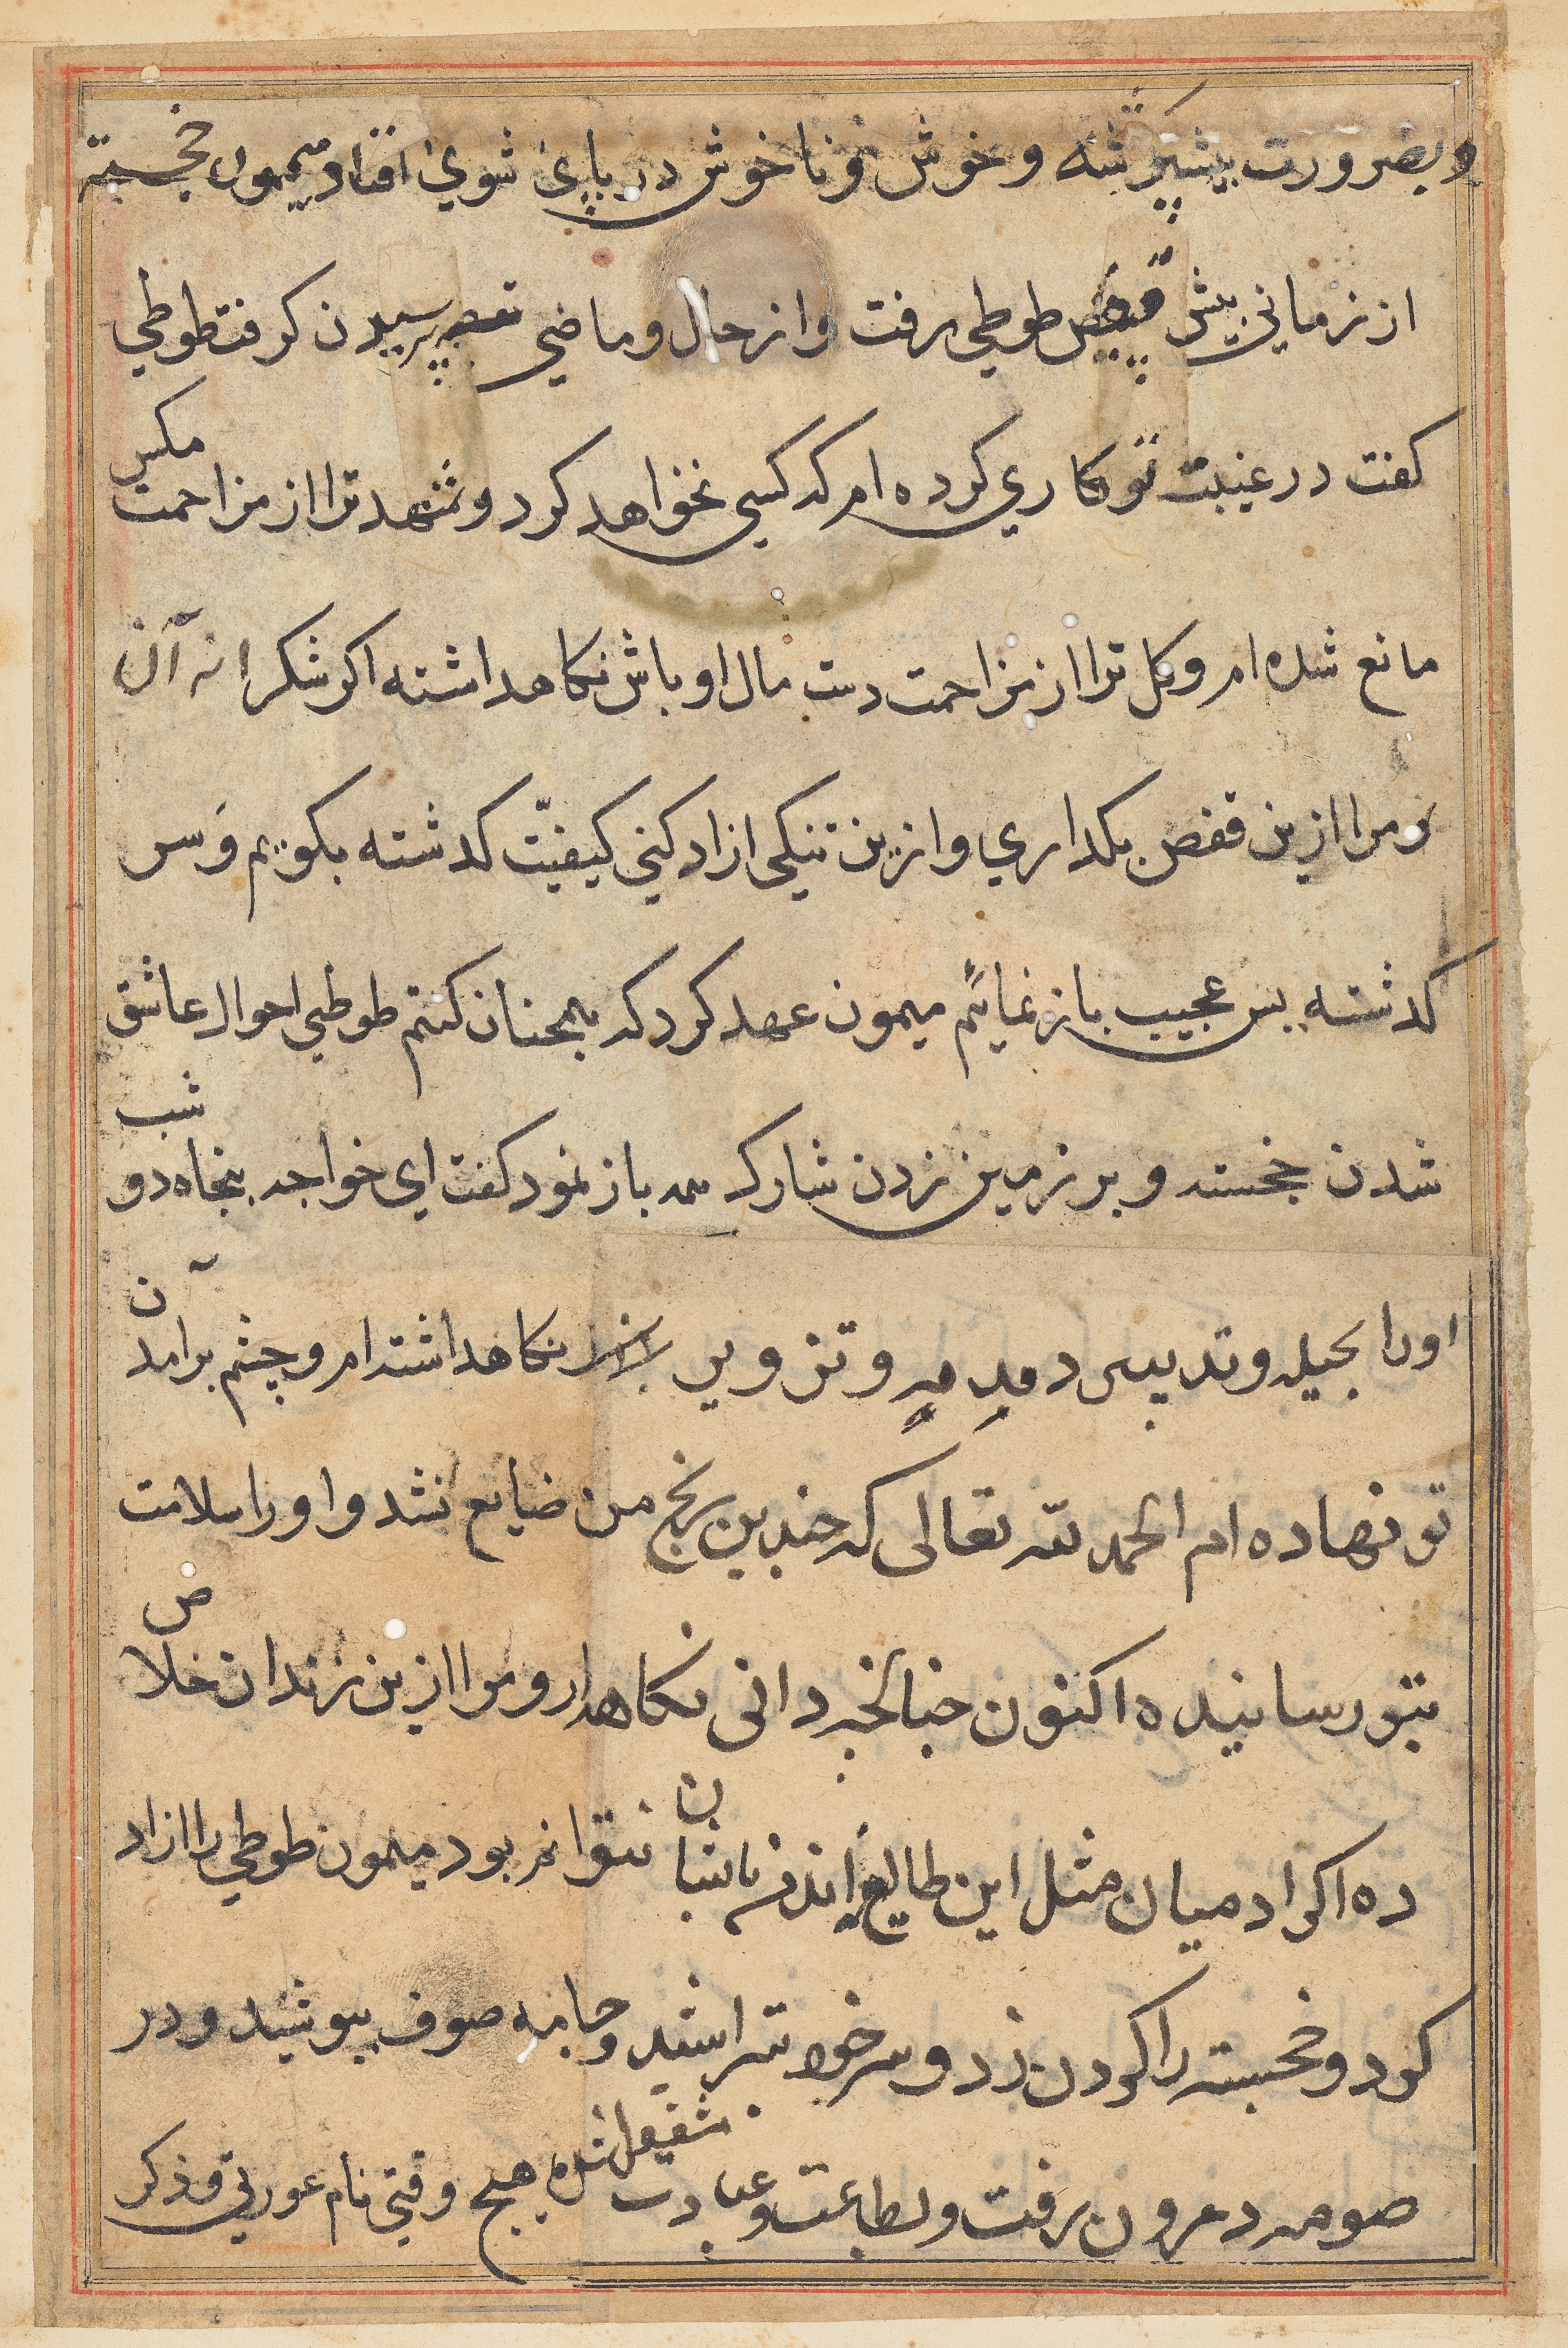 و بضرورت پیشتر شه و خوش و ناخوش در پای شوی افتاد میمون خجسته
از زمانی پیش قفص طوطی رفت و از حال و ماضی پرسیدن کرفت طوطی
کفت در غیبت تو کاری کرده ام که کسی نخواهد کرد و شهد ترا از مزاحمت مکس
مانع شده ام و کل ترا از مزاحمت دست مال اوباش نکاهداشته اکر شکرانه آن
ومرا ازین قفص بکداری و ازین تنکی ازاد کنی کیفیّت کدشته بکویم وَسر
کدشته بس عجیب باز نمایم میمون عهد کرد که همچنان کنم طوطی احوال عاشق
شدن خجسته و بر زمین زدن شارک همه باز نمود کفت ای خواجه پنجاه دو شب
اورا بحیله و تدبیر و دمدمه و تزویر نکاهداشته ام و چشم برامدن
تو نهاده ام الحمد لله تعالی که چندین رنج من ضایع نشد و اورا سلامت
بتو رسانیده اکنون چنانچه دانی نکاهدار و مرا ازین زندان خلاص
ده اکر ادمیان مثل این طایع اند در میان شان نتوانم بود میمون طوطی را ازاد
کرد و خجسته را کردن زد و سر خود تراشید و جامه صوف پوشید و در
صومعه درون رفت و بطاعت و عبادت مشغول شده هیچ وقتی نام عورتی و ذکر